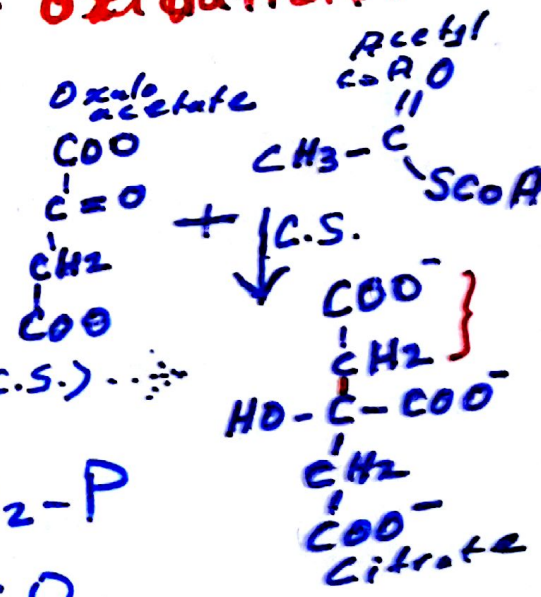 Oxalo
acetate
COO
C=O
CH2
COO
+
Acetyl
CoA O
CH3-C
SCoA
C.S.
COO-
CH2
HO-C-COO-
CH2
COO-
Citrate
C.S.)
2-P